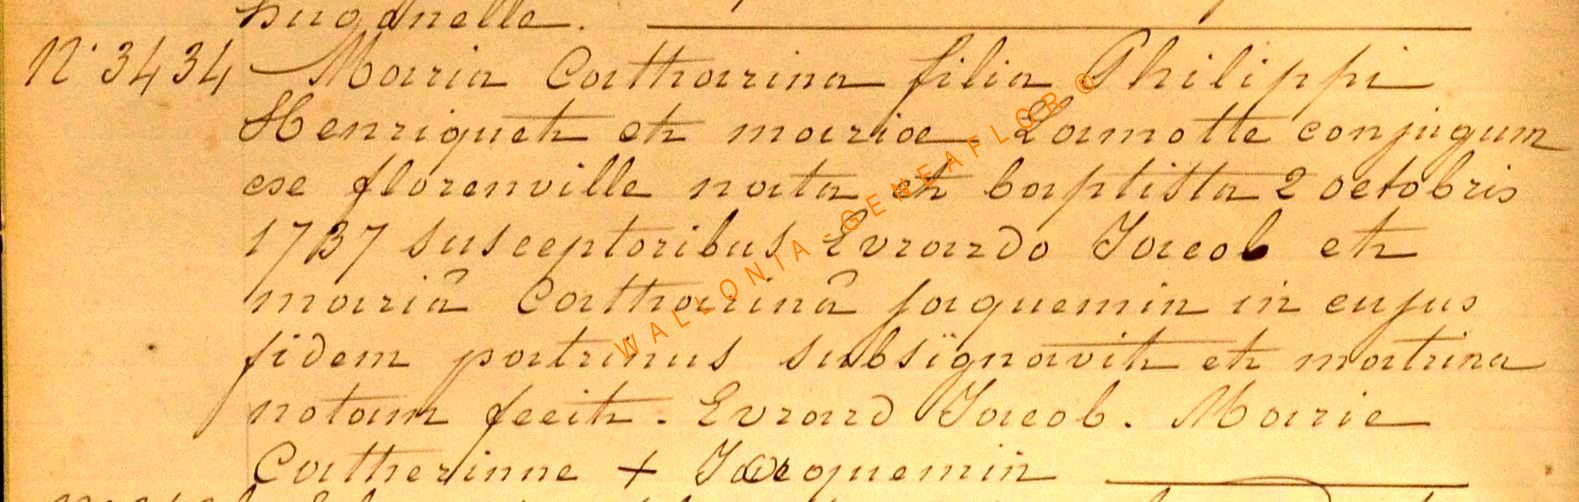 huganelle.
N° 3434 Maria Catharina filia Philippi
Henriquet et mariæ Lamotte conjugum
ex florenville nata et baptista 2 octobris
1737 susceptoribus Evrardo Jacob et
mariâ Catharinâ jaquemin in cujus
fidem patrinus subsignavit et matrina
notam fecit. Evrard Jacob. Marie
Catherinne + Jacquemin
WALLONIA-GENEAFLOR©